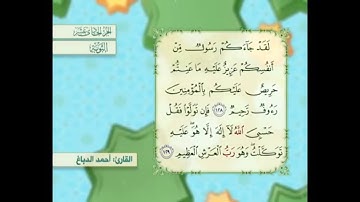 الجزء الحادي عشر
التوبة
لَقَدْ جَاءَكُمْ رَسُولٌ مِّنْ
أَنفُسِكُمْ عَزِيزٌ عَلَيْهِ مَا عَنِتُّمْ
حَرِيصٌ عَلَيْكُم بِالْمُؤْمِنِينَ
رَءُوفٌ رَّحِيمٌ ١٢٨ فَإِن تَوَلَّوْا فَقُلْ
حَسْبِيَ اللَّهُ لَا إِلَٰهَ إِلَّا هُوَ عَلَيْهِ
تَوَكَّلْتُ وَهُوَ رَبُّ الْعَرْشِ الْعَظِيمِ ١٢٩
القارئ: أحمد الدباغ